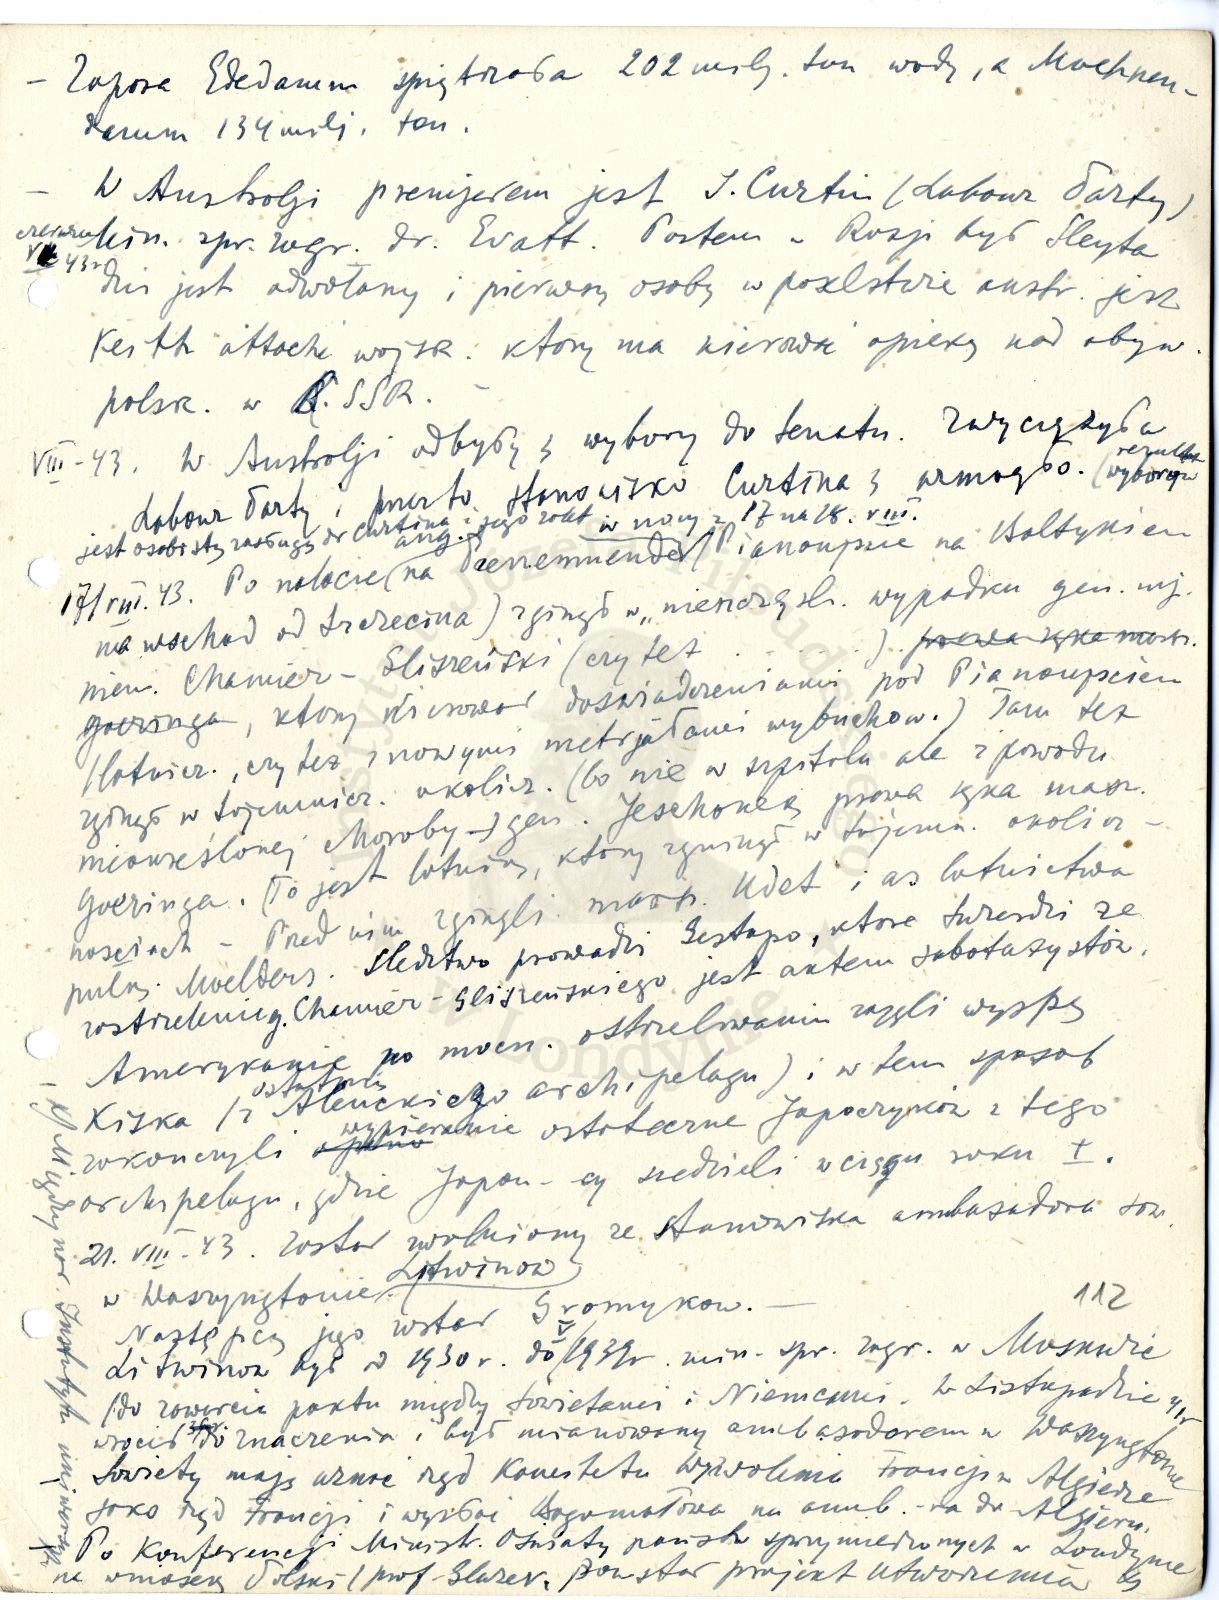 - Zapora Ededamm spiętrzała 202 milj. ton wody, a Moehnen-
damm 134 milj. ton.
- W Australji premjerem jest J. Curtin (Labour Party)
czerwiec VI 43 r.
Min. spr. zagr. dr. Evatt. Posłem w Rosji był Sleyta
dziś jest odwołany i pierwszą osobą w poselstwie austr. jest
Keith attaché wojsk. który ma kierować opieką nad obyw.
polsk. w S.S.R. -
VIII-43. W Australji odbyły się wybory do Senatu. Zwyciężyła
Labour Party i przez to stanowisko Curtina się wzmogło. (rezultat wyborów
jest osobistą zasługą dr Curtina i jego rząd
ang. w nocy z 17 na 18. VIII.
17/VIII. 43. Po nalocie (na Peenemuende / Pianoujście na Bałtykiem
na wschód od Szczecina) zginął w „nieszczęśl. wypadku gen. mj.
niem. Chamier-Gliszeński (czy też . . . . . ) prawa ręka marsz.
goeringa, który kierował doświadczeniami pod Pianoujściem
(lotnicz., czy też z nowymi materjałami wybuchow.) Tam też
zginął w tajemnicz. okolicz. (bo nie w szpitalu ale z powodu
nieokreślonej choroby -) gen. Jeschonek, prawa ręka marsz.
Goeringa. (To jest lotnik, który zginął w tajemn. okolicz-
nościach - Przed nim zginęli marsz. Udet i as lotnictwa
pułk. Moelders. Śledztwo prowadzi Gestapo, które twierdzi że
zastrzelenie g. Chamier-Gliszeńskiego jest aktem sabotażystów.
Amerykanie po mocn. ostrzeliwaniu zajęli wyspę
Kiska (z Aleuckiego archipelagu) i w ten sposób
ostatnią
zakończyli wypieranie ostateczne Japończyków z tego
archipelagu, gdzie Japoń-cy siedzieli w ciągu roku I.
21. VIII-43. Został zwolniony ze stanowiska ambasadora sow.
w Waszyngtonie Litwinow
Następcą jego został Gromykow. -
112
Litwinow był od 1930 r. do V 1939 r. min. spr. zagr. w Moskwie
(do zawarcia paktu między Sowietami i Niemcami. W Listopadzie 41 r
wrócił do znaczenia i był mianowany ambasadorem w Waszyngtonie
Sowiety mają uznać rząd Komitetu Wyzwolenia Francji w Algierze
jako rząd Francji i wysłać Bogomołowa na amb.-ra do Algieru.
Po Konferencji Ministr. Oświaty państw sprzymierzonych w Londynie
na wniosek Polski (prof. Glaser, powstał projekt utworzenia
Międzynar. Instytutu